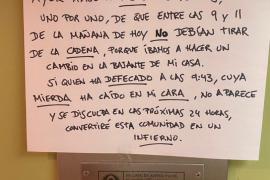 UNO POR UNO, DE QUE ENTRE LAS 9 Y 11
DE LA MAÑANA DE HOY NO DEBÍAN TIRAR
DE LA CADENA, PORQUE ÍBAMOS A HACER UN
CAMBIO EN LA BAJANTE DE MI CASA.
SI QUIEN HA DEFECADO A LAS 9:43, CUYA
MIERDA HA CAÍDO EN MI CARA, NO APARECE
Y SE DISCULPA EN LAS PRÓXIMAS 24 HORAS,
CONVERTIRÉ ESTA COMUNIDAD EN UN
INFIERNO.